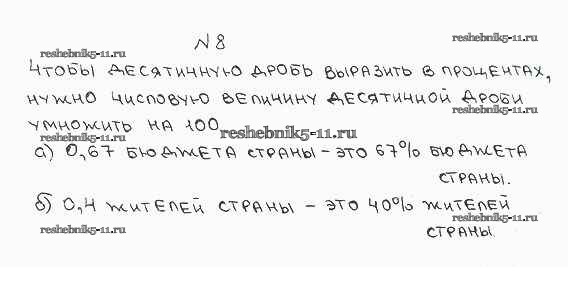 N 8
reshebnik5-11.ru
reshebnik5-11.ru
Чтобы десятичную дробь выразить в процентах,
нужно числовую величину десятичной дроби
reshebnik5-11.ru
умножить на 100
reshebnik5-11.ru
reshebnik5-11.ru
а) 0,67 бюджета страны – это 67% бюджета
страны.
б) 0,4 жителей страны – это 40% жителей
reshebnik5-11.ru
reshebnik5-11.ru
страны.